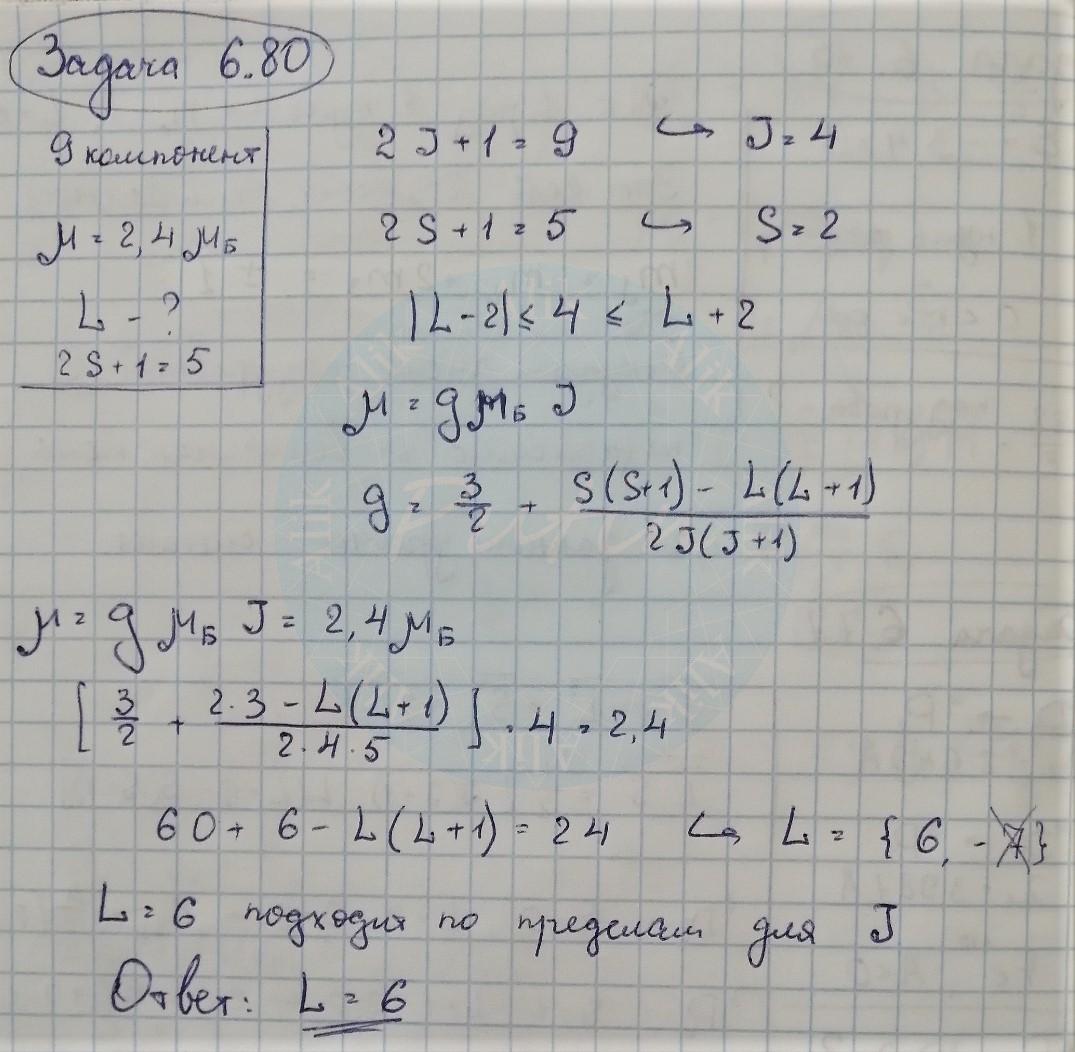 Задача 6.80
9 компонент
μ = 2,4 μ_Б
L - ?
2S + 1 = 5
2J + 1 = 9 ↪ J = 4
2S + 1 = 5 ↪ S = 2
|L - 2| ≤ 4 ≤ L + 2
μ = g μ_Б J
g = 3/2 + (S(S+1) - L(L+1))/(2J(J+1))
μ = g μ_Б J = 2,4 μ_Б
[3/2 + (2·3 - L(L+1))/(2·4·5)] · 4 = 2,4
60 + 6 - L(L+1) = 24 ↪ L = {6, -7}
L = 6 подходит по пределам для J
Ответ: L = 6
Alik
Alik
Alik
Alik
Alik
Alik